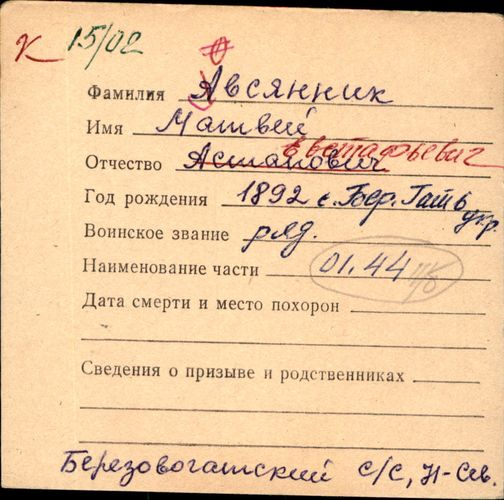 К 15/02
О
Фамилия Авсянник
Имя Матвей
Евстафьевич
Отчество Астапович
Год рождения 1892 с. Бер. Гать
укр.
Воинское звание ряд.
Наименование части 01.44 п/б
Дата смерти и место похорон
Сведения о призыве и родственниках
Березовогатский с/с, Н-Сев.